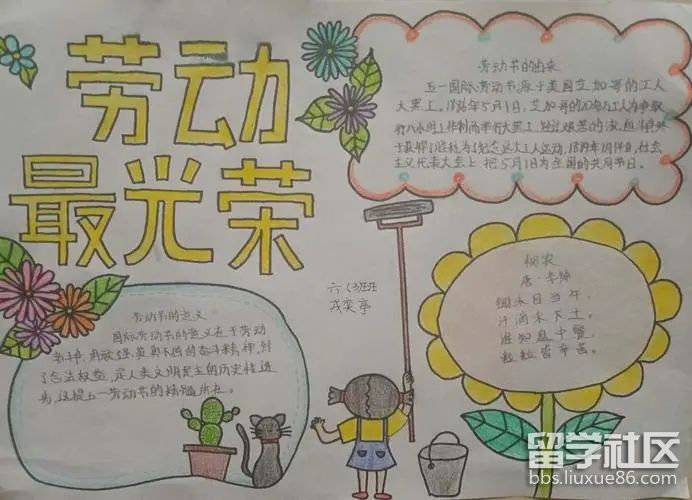 劳动
最光荣
劳动节的由来
五一国际劳动节源于美国芝加哥的工人
大罢工。1886年5月1日,芝加哥的20多万工人为争取
八小时工作制而举行大罢工,经过艰苦的流血
1889年 社会
主义代表大会上把5月1日为全国的共同节日。
劳动节的意义
国际劳动节的意义在于劳动
英勇不屈的奋斗精神,
了合法权益,是人类文明民主的历史性进
步,这是五一劳动节的精髓所在。
六(3)班
悯农
唐·李绅
锄禾日当午,
汗滴禾下土。
谁知盘中餐,
粒粒皆辛苦。
留学社区
bbs.liuxue86.com